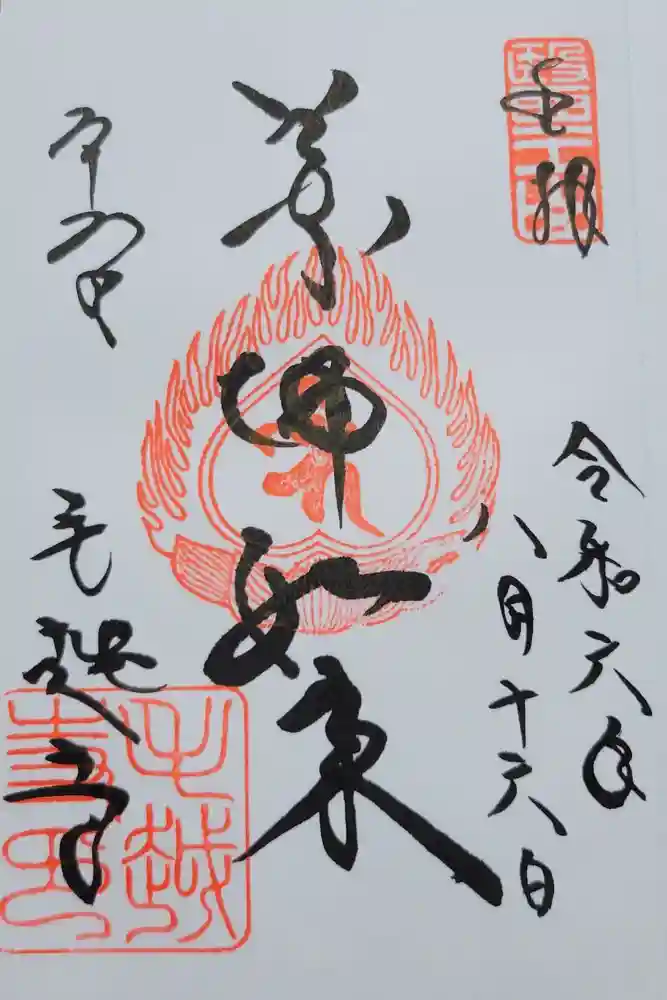 奉拝
令和六年
八月十六日
薬師如来
平泉
毛越寺
毛越
寺印